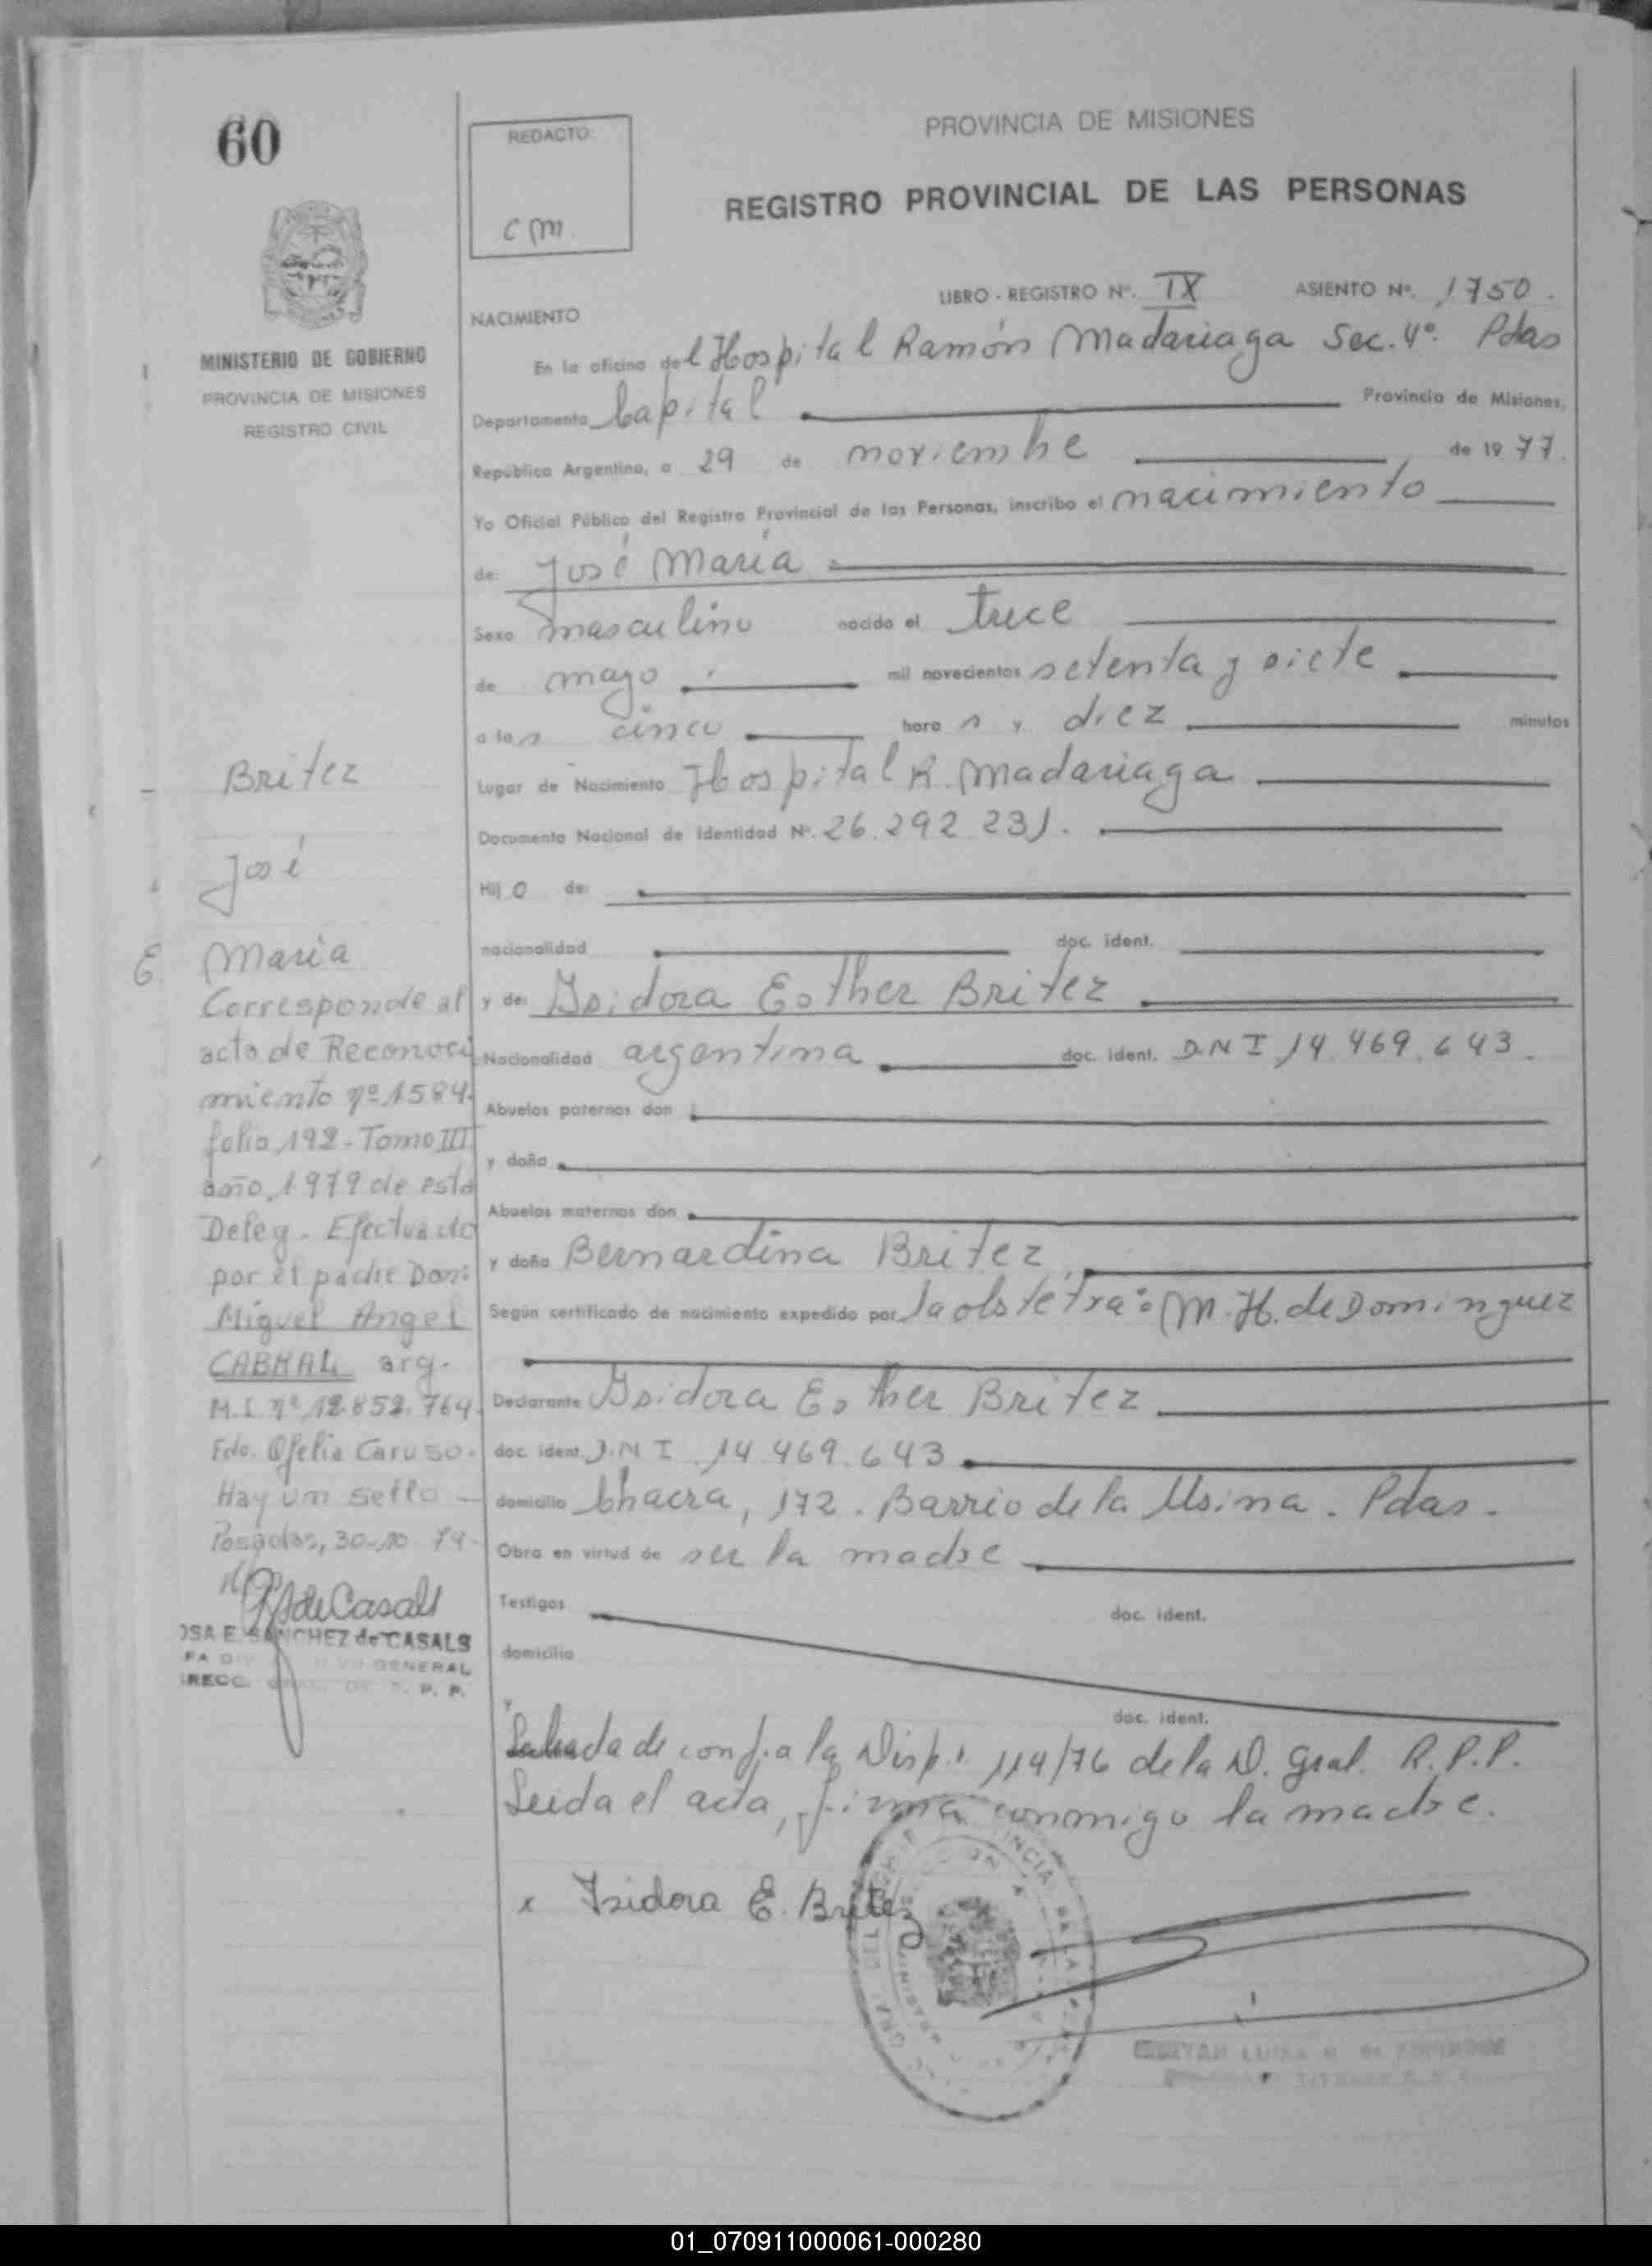 60
REDACTO:
cm.
PROVINCIA DE MISIONES
REGISTRO PROVINCIAL DE LAS PERSONAS
LIBRO - REGISTRO Nº. IX ASIENTO Nº. 1750.
NACIMIENTO
MINISTERIO DE GOBIERNO
PROVINCIA DE MISIONES
REGISTRO CIVIL
En la oficina del Hospital Ramón Madariaga Sec. 4º. Pdas
Departamento Capital Provincia de Misiones,
República Argentina, a 29 de noviembre de 1977.
Yo Oficial Público del Registro Provincial de las Personas, inscribo el nacimiento
de: José María
Sexo masculino nacido el trece
de mayo mil novecientos setenta y siete
a las cinco hora s y diez minutos
Lugar de Nacimiento Hospital R. Madariaga
Documento Nacional de Identidad Nº. 26.292.231.
Hijo de:
nacionalidad doc. ident.
y de: Isidora Esther Britez
Nacionalidad argentina doc. ident. D.N.I 14.469.643.
Abuelos paternos don
y doña
Abuelos maternos don
y doña Bernardina Britez
Según certificado de nacimiento expedido por la obstétra: M.H. de Dominguez
Declarante Isidora Esther Britez
doc. ident. D.N.I. 14.469.643
domicilio Chacra, 172. Barrio de la Usina. Pdas.
Obra en virtud de ser la madre
Testigos doc. ident.
domicilio
y
doc. ident.
da de conf. a la Disp. 114/76 de la D. Gral. R.P.P.
Leida el acta, firma conmigo la madre.
x Isidora E. Britez
Britez
José
María
Corresponde al
acta de Reconoci
miento nº 1584-
folio 192 - Tomo III
año 1979 de esta
Deleg. Efectuado
por el padre Don:
Miguel Angel
CABRAL arg.
M.I. nº 12.852.764.
Fdo. Ofelia Caruso.
Hay un sello -
Posadas, 30-10-79-
deCasals
OSA E. SANCHEZ de CASALS
GENERAL
R. P. P.
01_070911000061-000280